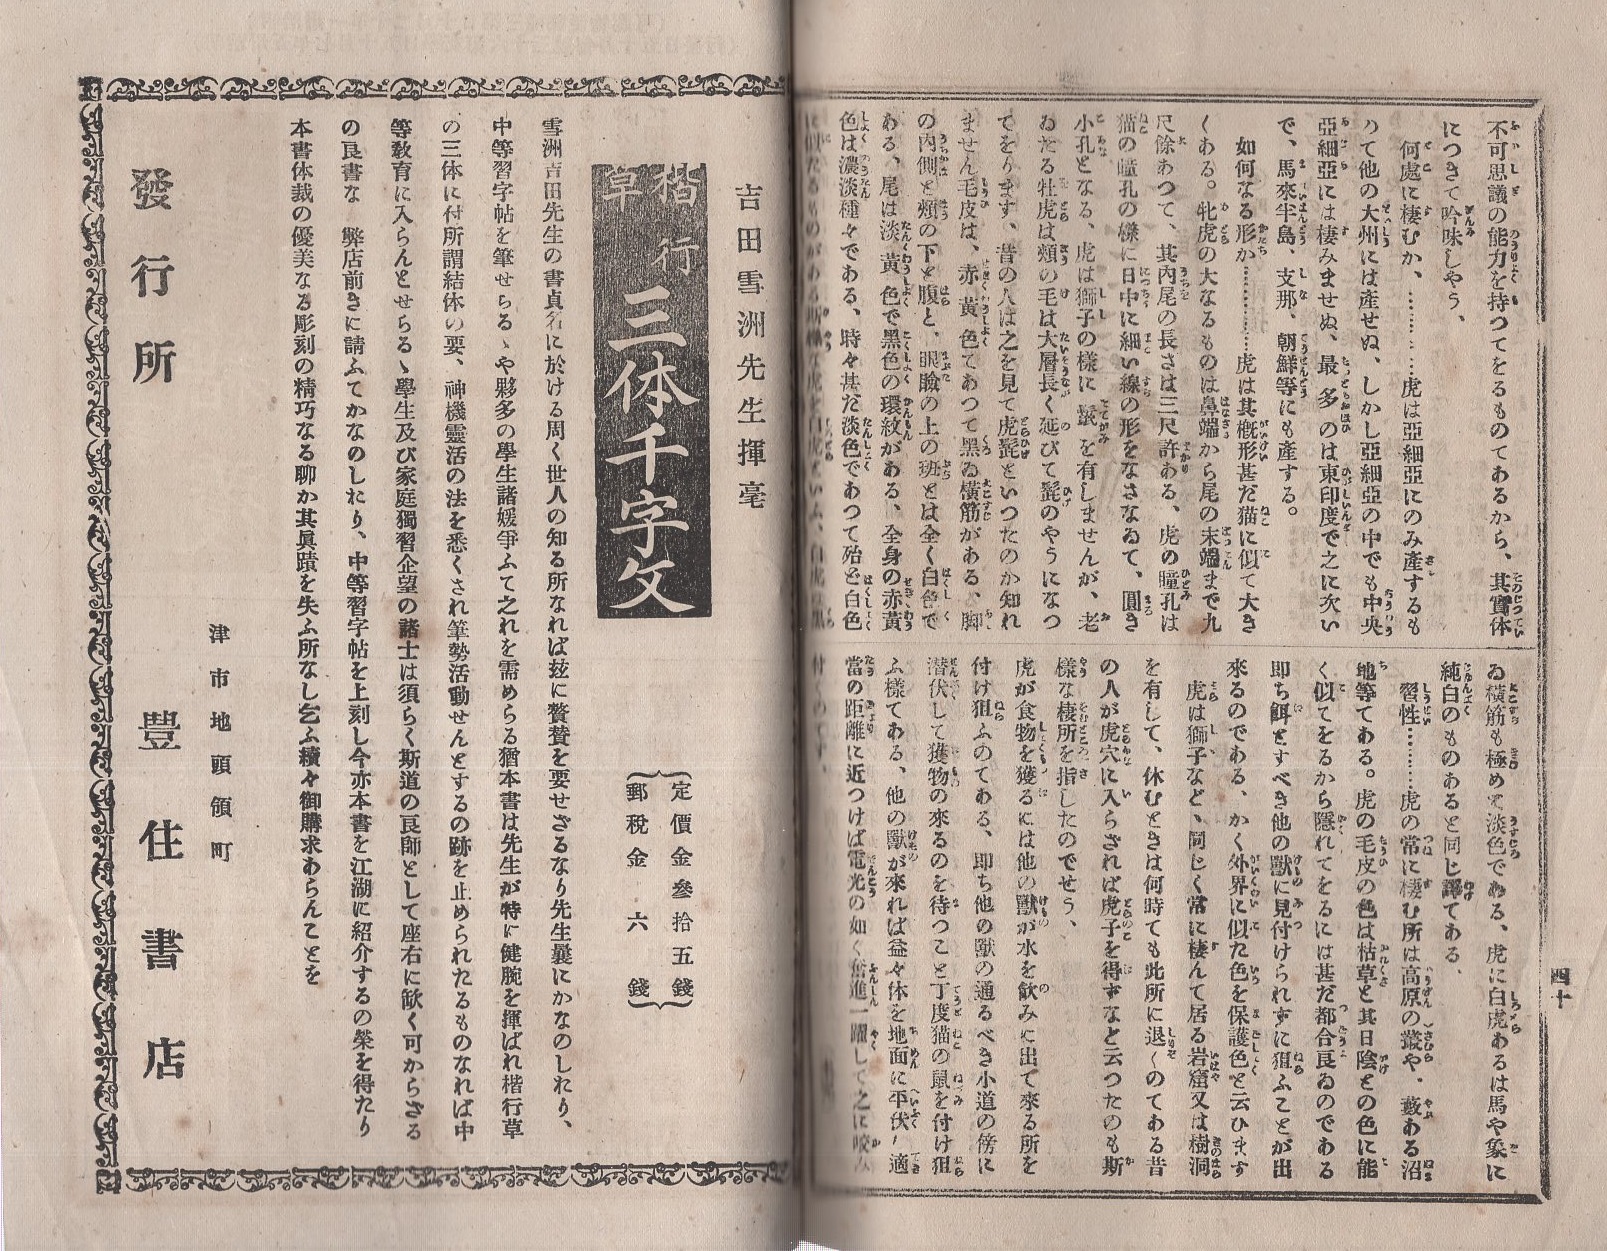 四十
不可思議の能力を持つてをるものてあるから、其實体
につきて吟味しやう、
何處に棲むか、…………虎は亞細亞にのみ產するも
のて他の大州には產せぬ、しかし亞細亞の中でも中央
亞細亞には棲みませぬ、最多のは東印度で之に次い
で、馬來半島、支那、朝鮮等にも產する。
如何なる形か…………虎は其槪形甚だ猫に似て大き
くある。牝虎の大なるものは鼻端から尾の末端まで九
尺餘あつて、其內尾の長さは三尺許ある、虎の瞳孔は
猫の瞳孔の樣に日中に細い線の形をなさなゐて、圓き
小孔となる、虎は獅子の樣に鬣を有しませんが、老
ゐたる牡虎は頬の毛は大層長く延びて髭のやうになつ
てをります、昔の人は之を見て虎髭といつたのか知れ
ません毛皮は、赤黃色てあつて黑ゐ橫筋がある、脚
の內側と頬の下と腹と、眼瞼の上の斑とは全く白色で
ある、尾は淡黃色で黑色の環紋がある、全身の赤黃
色は濃淡種々である、時々甚だ淡色であつて殆と白色
ゐ橫筋も極めて淡色である、虎に白虎あるは馬や象に
純白のものあると同じ譯てある、
習性…………虎の常に棲む所は高原の叢や、藪ある沼
地等てある。虎の毛皮の色は枯草と其日陰との色に能
く似てをるから隱れてをるには甚だ都合良ゐのである
即ち餌とすべき他の獸に見付けられずに狙ふことが出
來るのである、かく外界に似た色を保護色と云ひます
虎は獅子など、同じく常に棲んて居る岩窟又は樹洞
を有して、休むときは何時ても此所に退くのてある昔
の人が虎穴に入らされば虎子を得ずなと云つたのも斯
樣な棲所を指したのでせう、
虎が食物を獲るには他の獸が水を飮みに出て來る所を
付け狙ふのてある、即ち他の獸の通るべき小道の傍に
潛伏して獲物の來るのを待つこと丁度猫の鼠を付け狙
ふ樣てある、他の獸が來れば益々体を地面に平伏し適
當の距離に近つけば電光の如く奮進一躍して之に咬み
付くのです、
吉田雪洲先生揮毫
楷行草
三体千字文
定價金參拾五錢
郵稅金六錢
雪洲吉田先生の書貞名に於ける周く世人の知る所なれば玆に贅賛を要せざるなり先生曩にかなのしをり、
中等習字帖を筆せらるゝや夥多の學生諸媛爭ふて之れを需めらる猶本書は先生が特に健腕を揮ばれ楷行草
の三体に付所謂結体の要、神機靈活の法を悉くされ筆勢活動せんとするの跡を止められたるものなれば中
等敎育に入らんとせらるゝ學生及び家庭獨習企望の諸士は須らく斯道の良師として座右に歓く可からさる
の良書な 弊店前きに請ふてかなのしをり、中等習字帖を上刻し今亦本書を江湖に紹介するの榮を得たり
本書体裁の優美なる彫刻の精巧なる聊か其眞蹟を失ふ所なし乞ふ續々御購求あらんことを
津市地頭領町
發行所 豊住書店